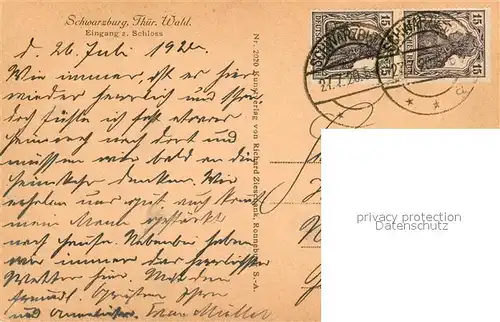 Schwarzburg, Thür. Wald.
Eingang z. Schloss
d. 26. Juli 1920.
Wie immer, ist es hier
wieder herrlich und
doch fühle ich fast etwas
Heimweh nach dort und
müssen wir bald an die
Heimkehr denken. Wir
erholen uns gut auch
mein Mann gestärkt
nach Hause. Nebenbei haben
wir immer das herrlichste
Wetter hier. Mit den
freundl. Grüßen Ihre
und Frau Müller
Nr. 2620 Kunstverlag von Richard Zieschank, Ronneburg S.-A.
15 15
DEUTSCHES REICH
SCHWARZBURG
27.7.20.
privacy protection
Datenschutz